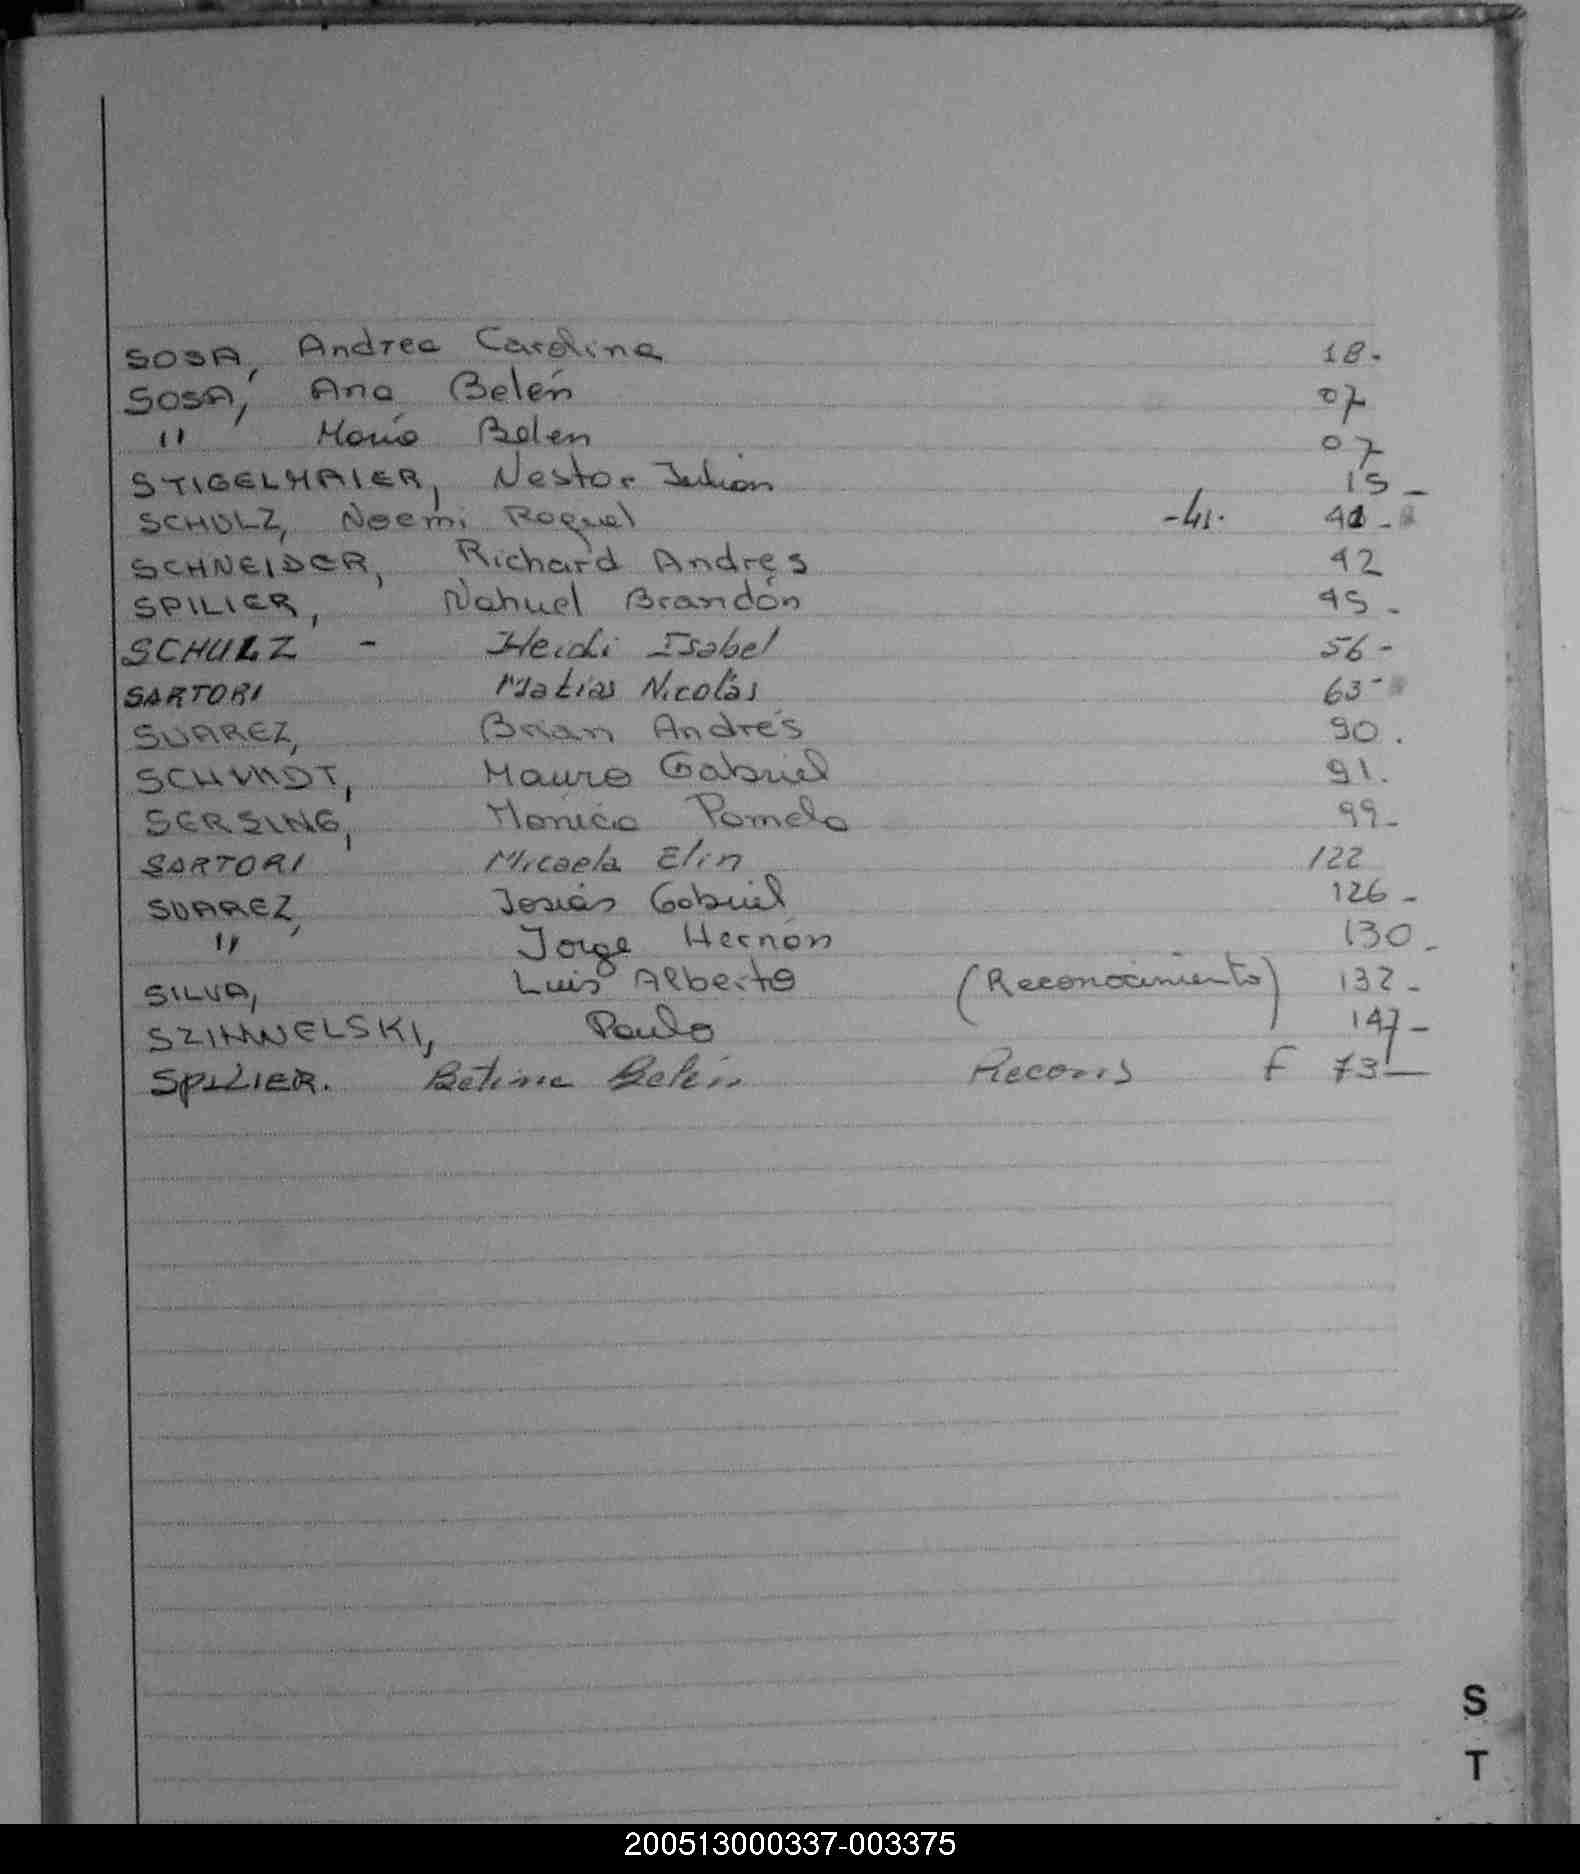 SOSA, Andrea Carolina 18.
SOSA, Ana Belén 07
" María Belen 07
STIGELMAIER, Nestor Julián 15-
SCHULZ, Noemi Raquel -41. 41-
SCHNEIDER, Richard Andrés 42
SPILIER, Nahuel Brandón 45-
SCHULZ - Heidi Isabel 56-
SARTORI Matias Nicolás 63-
SUAREZ, Brian Andrés 90.
SCHMIDT, Mauro Gabriel 91.
SERSING, Mónica Pamela 99-
SARTORI Micaela Elin 122
SUAREZ, Josías Gabriel 126-
" Jorge Hernán 130-
SILVA, Luis Alberto (Reconocimiento) 132-
Paulo 147-
SPILIER. Betina Belén F 73-
S
T
200513000337-003375